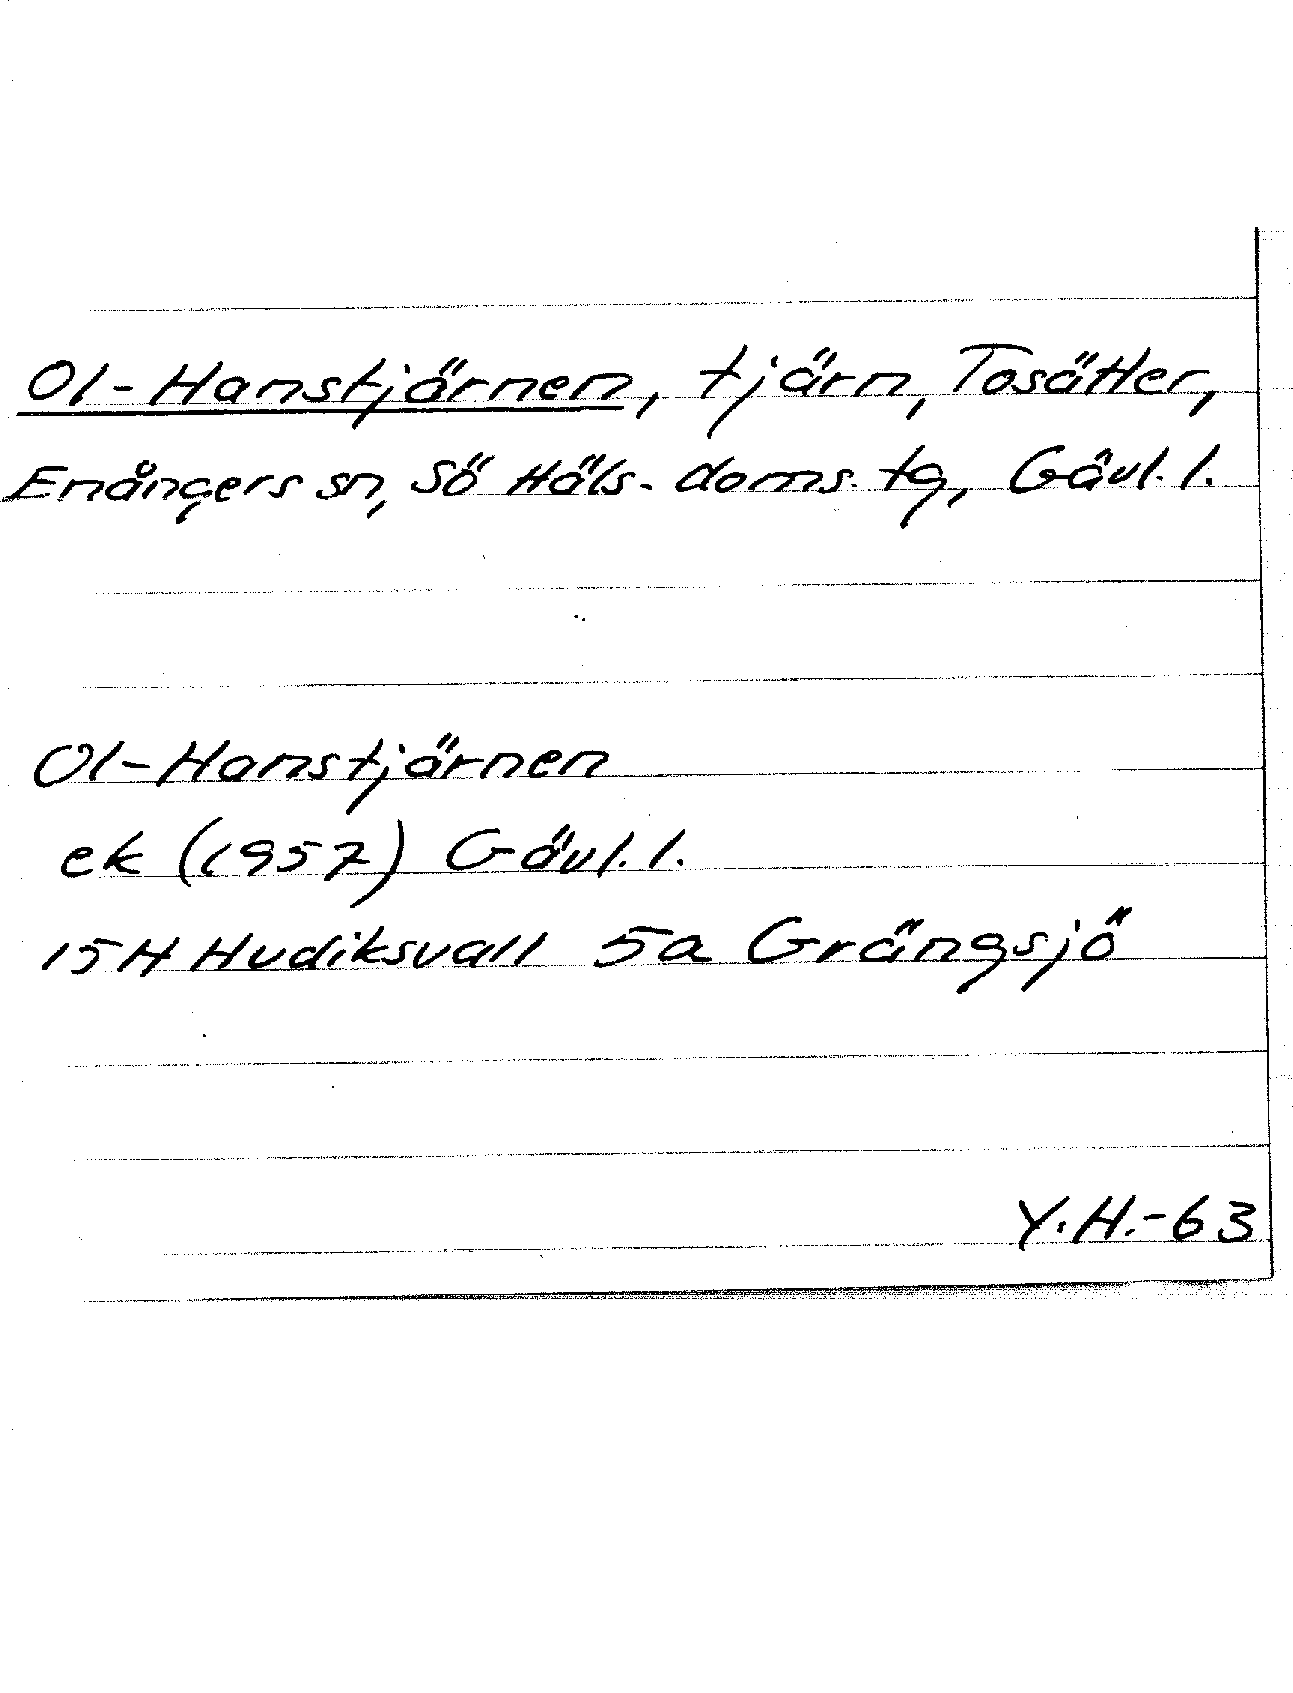 Ol-Hanstjärnen, tjärn, Tosätter,
Enångers sn, Sö Häls. doms. tg, Gävl. l.
Ol-Hanstjärnen
ek (1957) Gävl. l.
15H Hudiksvall 5a Grängsjö
Y.H.-63